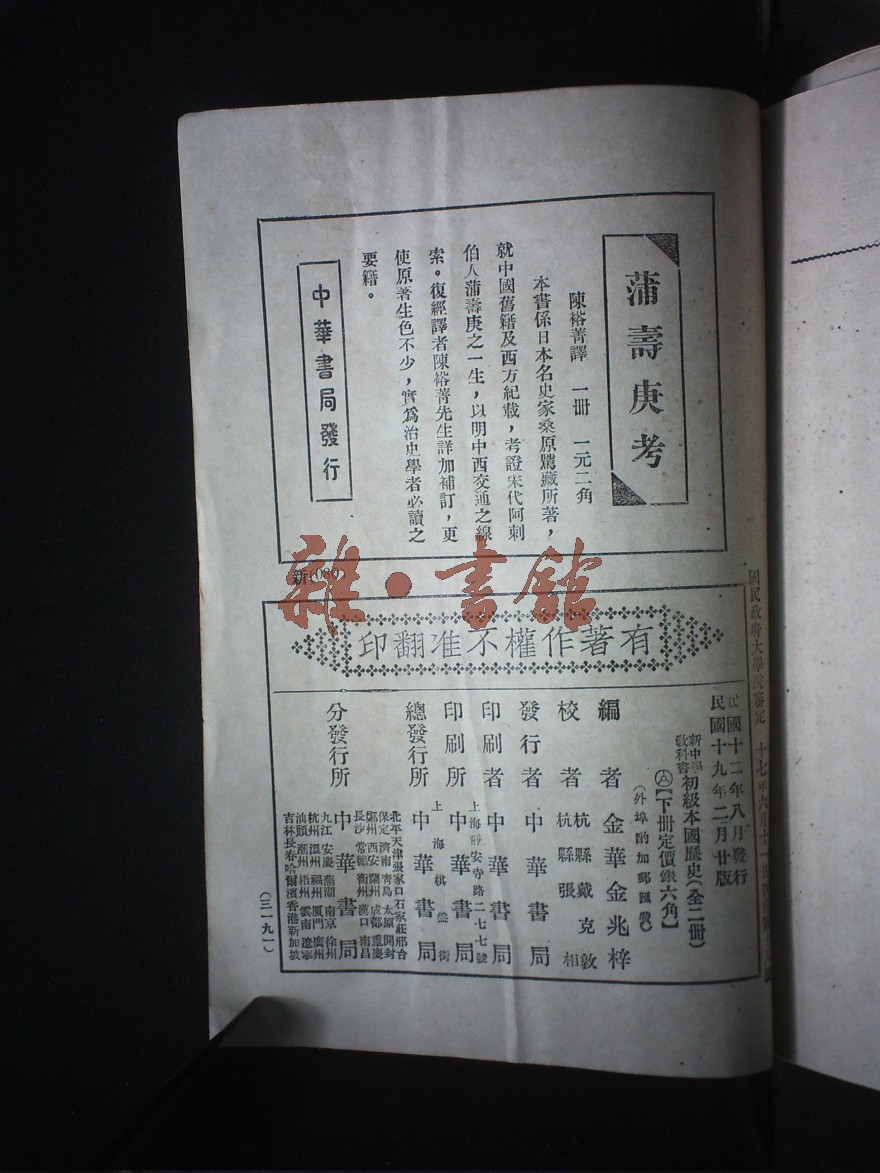 蒲壽庚考
陳裕菁譯　一冊　一元二角
本書係日本名史家桑原騭藏所著，
就中國舊籍及西方紀載，考證宋代阿剌
伯人蒲壽庚之一生，以明中西交通之線
索。復經譯者陳裕菁先生詳加補訂，更
使原著生色不少，實爲治史學者必讀之
要籍。
中華書局發行
新(080)
雜·書館
有著作權不准翻印
國民政府大學院審定　十七年六月十一
民國十二年八月發行
民國十九年二月廿版
新中學教科書初級本國歷史（全二冊）
【下冊定價銀六角】
（外埠酌加郵匯費）
編者　金華金兆梓
校者　杭縣戴克敦
杭縣張相
發行者　中華書局
印刷者　中華書局
上海靜安寺路二七七號
印刷所　中華書局
上海棋盤街
總發行所　中華書局
北平天津張家口石家莊邢台
保定濟南青島太原開封
鄭州西安蘭州成都重慶
長沙常德衡州漢口南昌
分發行所　中華書局
九江安慶蕪湖南京徐州
杭州溫州福州厦門廣州
汕頭潮州梧州雲南遼寧
吉林長春哈爾濱香港新加坡
（三一九一）